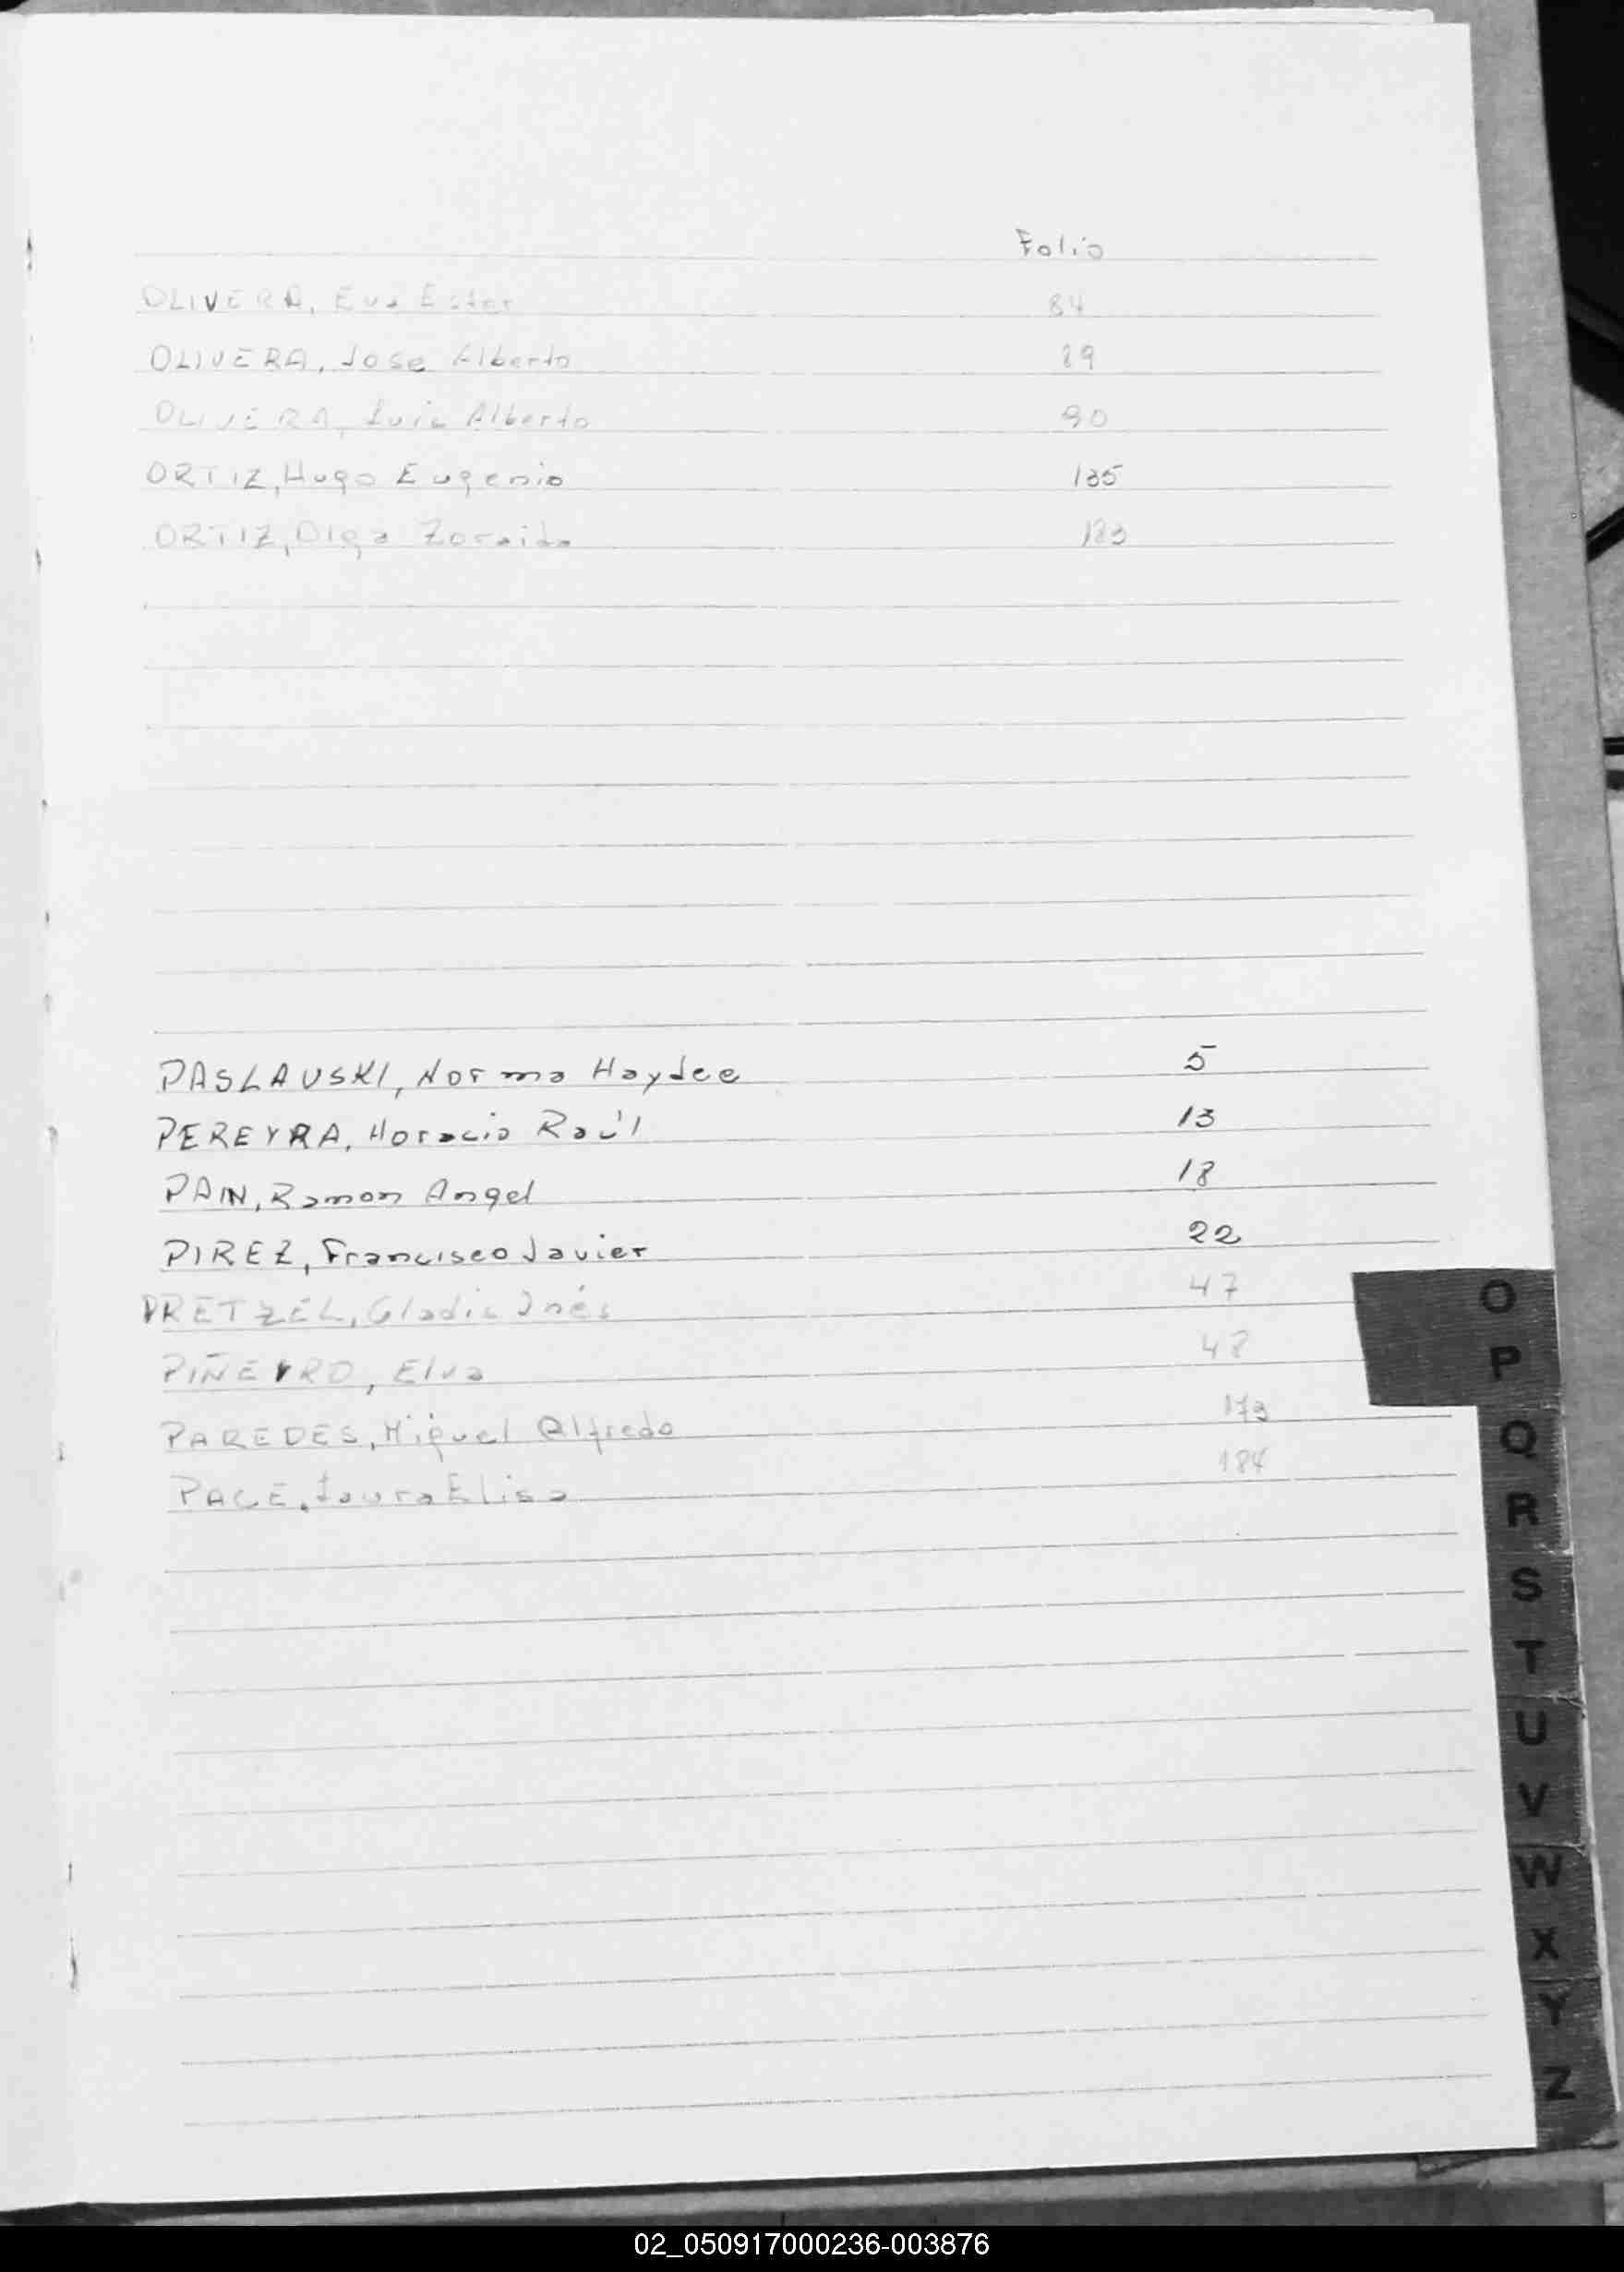 Folio
OLIVERA, Eva Ester 84
OLIVERA, Jose Alberto 89
OLIVERA, Luis Alberto 90
ORTIZ, Hugo Eugenio 135
ORTIZ, Olga Zoraida
PASLAUSKI, Norma Haydee 5
PEREYRA, Horacio Raúl 13
PAIN, Ramon Angel 18
PIREZ, Francisco Javier 22
PRETZEL, Gladis Inés 47
PIÑEYRO, Elva 48
PAREDES, Miguel Alfredo 179
PACE, Laura Elisa 184
O
P
Q
R
S
T
U
V
W
X
Y
Z
02_050917000236-003876